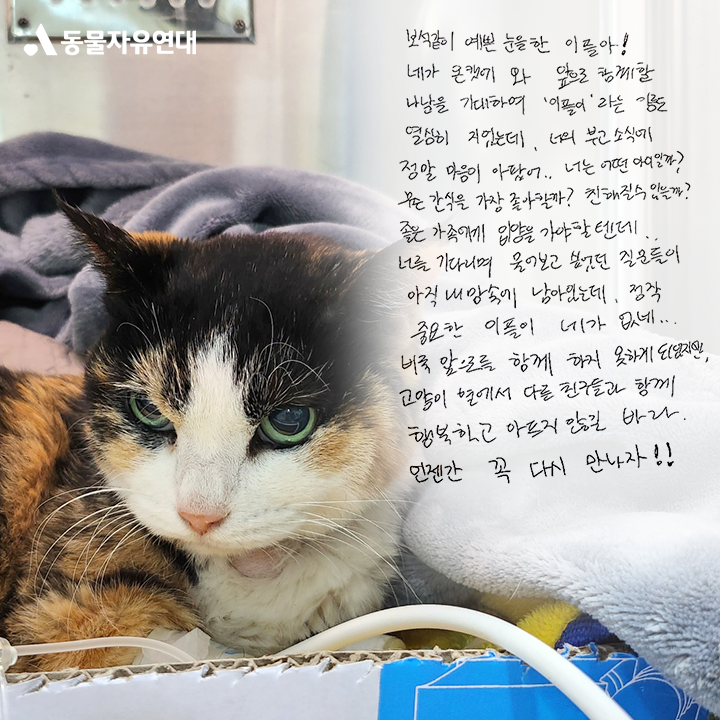 동물자유연대
보석같이 예쁜 눈을한 이플아!
네가 온캣에 와 앞으로 함께할
나날을 기대하며 '이플이' 라는 이름도
열심히 지었는데, 너의 부고 소식에
정말 마음이 아팠어.. 너는 어떤 아이일까?
무슨 간식을 가장 좋아할까? 친해질수 있을까?
좋은 가족에게 입양을 가야할 텐데..
너를 기다리며 물어보고 싶었던 질문들이
아직 내 맘속에 남아있는데, 정작
중요한 이플이 네가 없네...
비록 앞으로를 함께 하지 못하게 되었지만,
고양이 별에서 다른 친구들과 함께
행복하고 아프지 않길 바라.
언젠간 꼭 다시 만나자!!